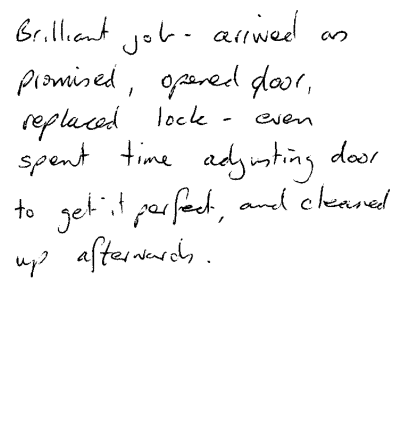 Brilliant job - arrived as
promised, opened door,
replaced lock - even
spent time adjusting door
to get it perfect, and cleaned
up afterwards.